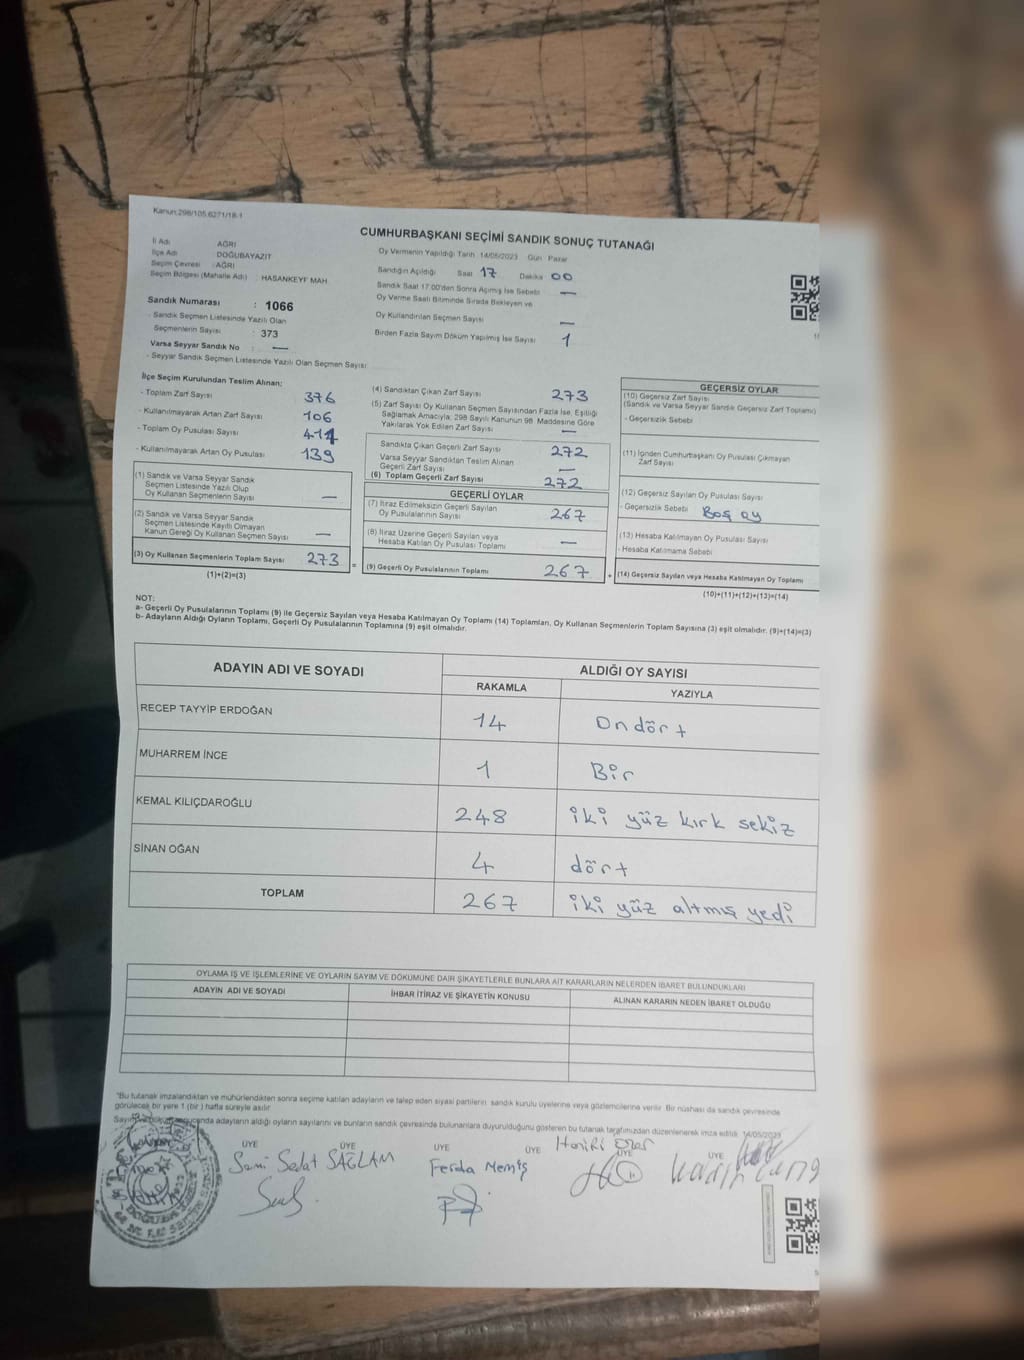 Kanun:298/105.6271/18-1
CUMHURBAŞKANI SEÇİMİ SANDIK SONUÇ TUTANAĞI
İl Adı AĞRI
İlçe Adı DOĞUBAYAZIT
Seçim Çevresi : AĞRI
Seçim Bölgesi (Mahalle Adı) : HASANKEYF MAH.
Sandık Numarası : 1066
- Sandık Seçmen Listesinde Yazılı Olan
Seçmenlerin Sayısı : 373
Varsa Seyyar Sandık No : —
- Seyyar Sandık Seçmen Listesinde Yazılı Olan Seçmen Sayısı
Oy Vermenin Yapıldığı Tarih 14/05/2023 Gün Pazar
Sandığın Açıldığı Saat 17 Dakika 00
Sandık Saat 17:00'den Sonra Açılmış İse Sebebi —
Oy Verme Saati Bitiminde Sırada Bekleyen ve
Oy Kullandırılan Seçmen Sayısı —
Birden Fazla Sayım Döküm Yapılmış İse Sayısı 1
İlçe Seçim Kurulundan Teslim Alınan;
- Toplam Zarf Sayısı 376
- Kullanılmayarak Artan Zarf Sayısı 106
- Toplam Oy Pusulası Sayısı 411
- Kullanılmayarak Artan Oy Pusulası 139
(1) Sandık ve Varsa Seyyar Sandık
Seçmen Listesinde Yazılı Olup
Oy Kullanan Seçmenlerin Sayısı —
(2) Sandık ve Varsa Seyyar Sandık
Seçmen Listesinde Kayıtlı Olmayan
Kanun Gereği Oy Kullanan Seçmen Sayısı —
(3) Oy Kullanan Seçmenlerin Toplam Sayısı 273 =
(1)+(2)=(3)
(4) Sandıktan Çıkan Zarf Sayısı 273
(5) Zarf Sayısı Oy Kullanan Seçmen Sayısından Fazla İse, Eşitliği
Sağlamak Amacıyla; 298 Sayılı Kanunun 98. Maddesine Göre
Yakılarak Yok Edilen Zarf Sayısı —
Sandıkta Çıkan Geçerli Zarf Sayısı 272
Varsa Seyyar Sandıktan Teslim Alınan
Geçerli Zarf Sayısı —
(6) Toplam Geçerli Zarf Sayısı 272
GEÇERLİ OYLAR
(7) İtiraz Edilmeksizin Geçerli Sayılan
Oy Pusulalarının Sayısı 267
(8) İtiraz Üzerine Geçerli Sayılan veya
Hesaba Katılan Oy Pusulası Toplamı —
(9) Geçerli Oy Pusulalarının Toplamı 267 +
GEÇERSİZ OYLAR
(10) Geçersiz Zarf Sayısı
(Sandık ve Varsa Seyyar Sandık Geçersiz Zarf Toplamı)
- Geçersizlik Sebebi
(11) İçinden Cumhurbaşkanı Oy Pusulası Çıkmayan
Zarf Sayısı
(12) Geçersiz Sayılan Oy Pusulası Sayısı
- Geçersizlik Sebebi Boş oy
(13) Hesaba Katılmayan Oy Pusulası Sayısı
- Hesaba Katılmama Sebebi
(14) Geçersiz Sayılan veya Hesaba Katılmayan Oy Toplamı
(10)+(11)+(12)+(13)=(14)
NOT:
a- Geçerli Oy Pusulalarının Toplamı (9) ile Geçersiz Sayılan veya Hesaba Katılmayan Oy Toplamı (14) Toplamları, Oy Kullanan Seçmenlerin Toplam Sayısına (3) eşit olmalıdır. (9)+(14)=(3)
b- Adayların Aldığı Oyların Toplamı, Geçerli Oy Pusulalarının Toplamına (9) eşit olmalıdır.
ADAYIN ADI VE SOYADI ALDIĞI OY SAYISI
RAKAMLA YAZIYLA
RECEP TAYYİP ERDOĞAN 14 Ondört
MUHARREM İNCE 1 Bir
KEMAL KILIÇDAROĞLU 248 iki yüz kırk sekiz
SİNAN OĞAN 4 dört
TOPLAM 267 iki yüz altmış yedi
OYLAMA İŞ VE İŞLEMLERİNE VE OYLARIN SAYIM VE DÖKÜMÜNE DAİR ŞİKAYETLERLE BUNLARA AİT KARARLARIN NELERDEN İBARET BULUNDUKLARI
ADAYIN ADI VE SOYADI İHBAR İTİRAZ VE ŞİKAYETİN KONUSU ALINAN KARARIN NEDEN İBARET OLDUĞU
*Bu tutanak imzalandıktan ve mühürlendikten sonra seçime katılan adayların ve talep eden siyasi partilerin, sandık kurulu üyelerine veya gözlemcilerine verilir. Bir nüshası da sandık çevresinde
görülecek bir yere 1 (bir) hafta süreyle asılır.
adayların aldığı oyların sayılarını ve bunların sandık çevresinde bulunanlara duyurulduğunu gösteren bu tutanak tarafımızdan düzenlenerek imza edildi. 14/05/2023
ÜYE ÜYE ÜYE ÜYE ÜYE ÜYE
Sami Sedat SAĞLAM Ferda Memiş